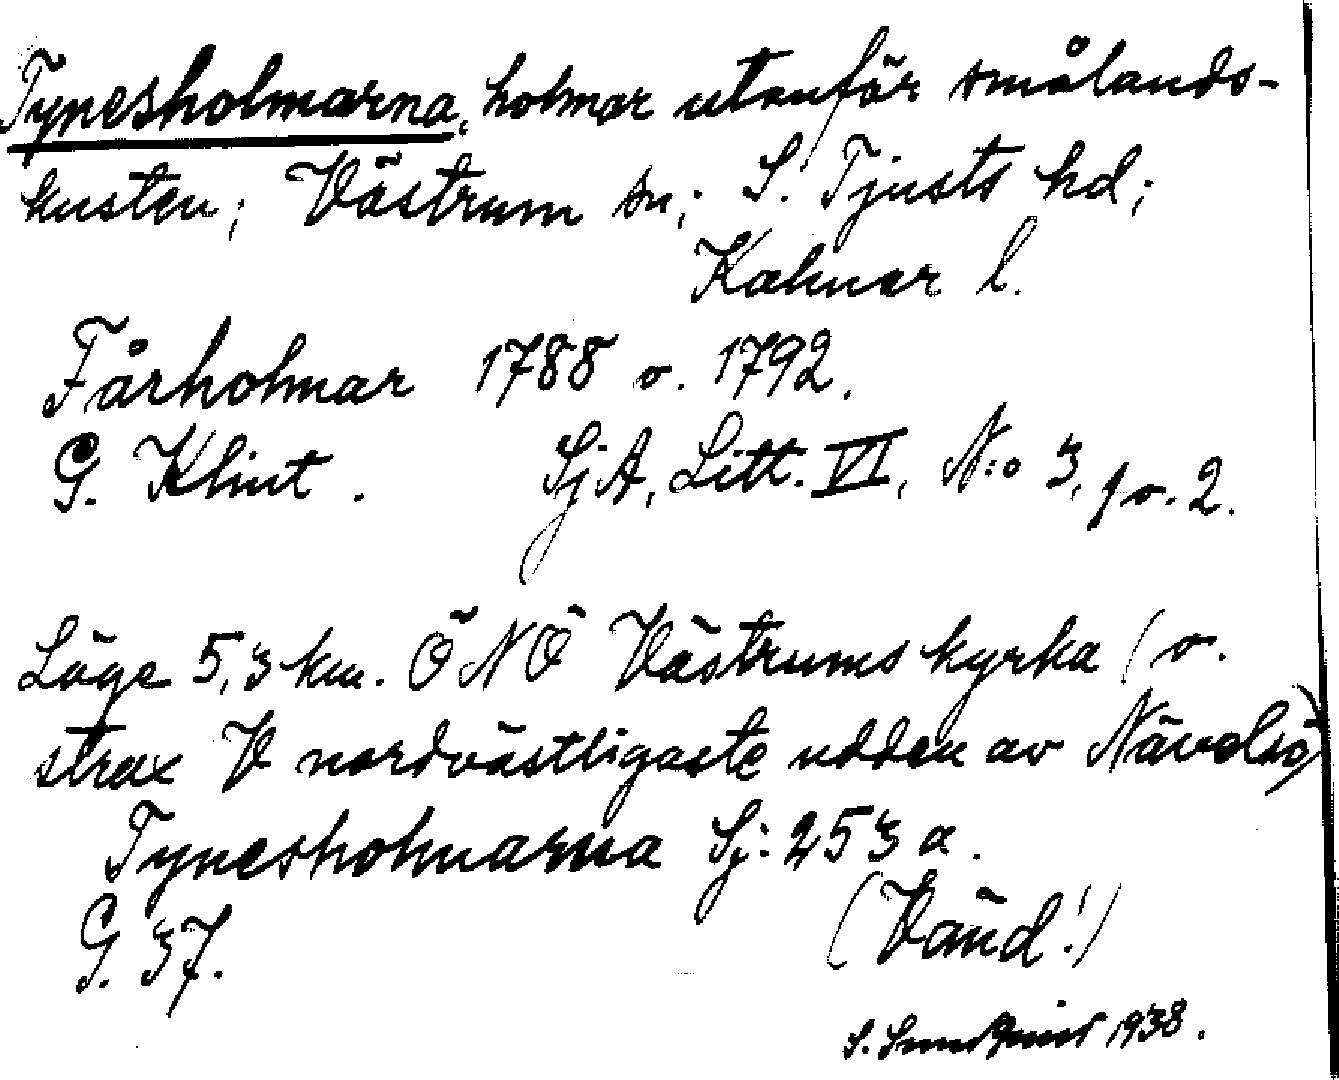 Tynesholmarna, holmar utanför smålands-
kusten; Västrum sn; S. Tjusts hd;
Kalmar l.
Fårholmar 1788 o. 1792.
G. Klint. SjA, Litt. VI, N:o 3, 1 o. 2.
Läge 5,3 km. ÖNÖ Västrums kyrka (o.
strax V nordvästligaste udden av Nävelsö)
Tynesholmarna Sj: 253 a.
G. 37. (Vänd!)
S. Sundquist 1938.